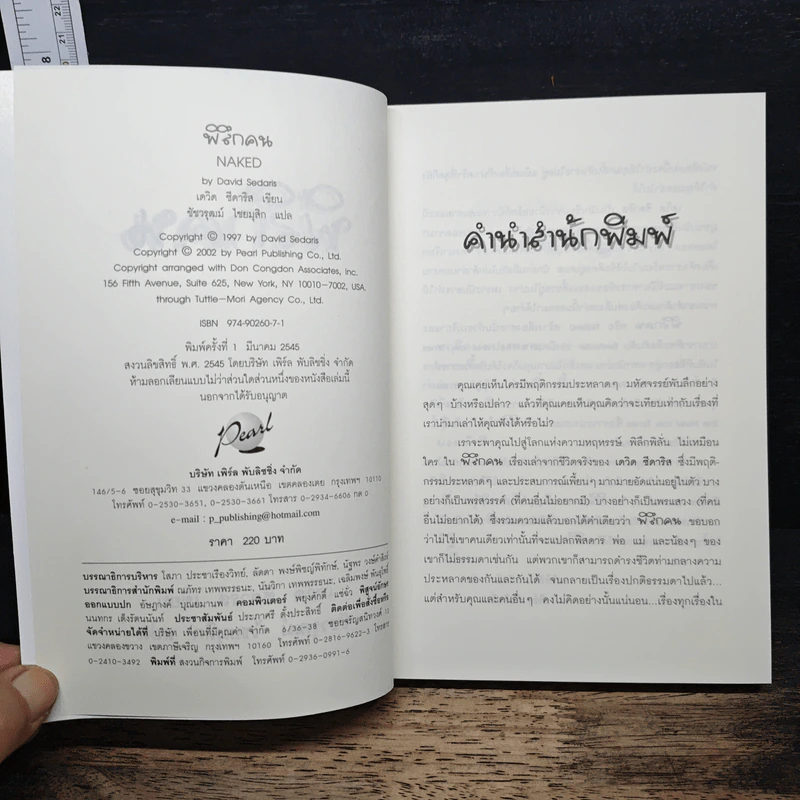 พิรึกคน
NAKED
by David Sedaris
เดวิด ซีดาริส เขียน
ชัชวรุฒม์ ไชยมุสิก แปล
Copyright © 1997 by David Sedaris
Copyright © 2002 by Pearl Publishing Co., Ltd.
Copyright arranged with Don Congdon Associates, Inc.
156 Fifth Avenue, Suite 625, New York, NY 10010-7002, USA.
through Tuttle-Mori Agency Co., Ltd.
ISBN 974-90260-7-1
พิมพ์ครั้งที่ 1 มีนาคม 2545
สงวนลิขสิทธิ์ พ.ศ. 2545 โดยบริษัท เพิร์ล พับลิชซิ่ง จำกัด
ห้ามลอกเลียนแบบไม่ว่าส่วนใดส่วนหนึ่งของหนังสือเล่มนี้
นอกจากได้รับอนุญาต
Pearl
บริษัท เพิร์ล พับลิชซิ่ง จำกัด
146/5-6 ซอยสุขุมวิท 33 แขวงคลองตันเหนือ เขตคลองเตย กรุงเทพฯ 10110
โทรศัพท์ 0-2530-3651, 0-2530-3661 โทรสาร 0-2934-6606 กด 0
e-mail : p_publishing@hotmail.com
ราคา 220 บาท
บรรณาธิการบริหาร โสภา ประชาเรืองวิทย์, ลัดดา พงษ์พิชญ์พิทักษ์, นัฐพร
บรรณาธิการสำนักพิมพ์ ณภัทร เทพพรรธนะ, นันวิกา เทพพรรธนะ, เฉลิมพงษ์
ออกแบบปก อัษฎางค์ บุณยมานพ คอมพิวเตอร์ พยุงศักดิ์ แซ่ฉั่ว พิสูจน์อักษร
นนทกร เด็งรัตนนันท์ ประชาสัมพันธ์ ประภาศรี ตั้งประสิทธิ์ ติดต่อเพื่อสั่งซื้อหรือ
จัดจำหน่ายได้ที่ บริษัท เพื่อนที่มีคุณค่า จำกัด 6/36-38 ซอยจรัญสนิทวงศ์
แขวงคลองขวาง เขตภาษีเจริญ กรุงเทพฯ 10160 โทรศัพท์ 0-2816-9622-3 โทรสาร
0-2410-3492 พิมพ์ที่ สงวนกิจการพิมพ์ โทรศัพท์ 0-2936-0991-6
คำนำสำนักพิมพ์
คุณเคยเห็นใครมีพฤติกรรมประหลาดๆ มหัศจรรย์พันลึกอย่าง
สุดๆ บ้างหรือเปล่า? แล้วที่คุณเคยเห็นคุณคิดว่าจะเทียบเท่ากับเรื่องที่
เรานำมาเล่าให้คุณฟังได้หรือไม่?
เราจะพาคุณไปสู่โลกแห่งความหฤหรรษ์ พิลึกพิลั่น ไม่เหมือน
ใคร ใน พิรึกคน เรื่องเล่าจากชีวิตจริงของ เดวิด ซีดาริส ซึ่งมีพฤติ-
กรรมประหลาดๆ และประสบการณ์เพี้ยนๆ มากมายอัดแน่นอยู่ในตัว บาง
อย่างก็เป็นพรสวรรค์ (ที่คนอื่นไม่อยากมี) บางอย่างก็เป็นพรแสวง (ที่คน
อื่นไม่อยากได้) ซึ่งรวมความแล้วบอกได้คำเดียวว่า พิรึกคน ขอบอก
ว่าไม่ใช่เขาคนเดียวเท่านั้นที่จะแปลกพิสดาร พ่อ แม่ และน้องๆ ของ
เขาก็ไม่ธรรมดาเช่นกัน แต่พวกเขาก็สามารถดำรงชีวิตท่ามกลางความ
ประหลาดของกันและกันได้ จนกลายเป็นเรื่องปกติธรรมดาไปแล้ว...
แต่สำหรับคุณและคนอื่นๆ คงไม่คิดอย่างนั้นแน่นอน...เรื่องทุกเรื่องใน